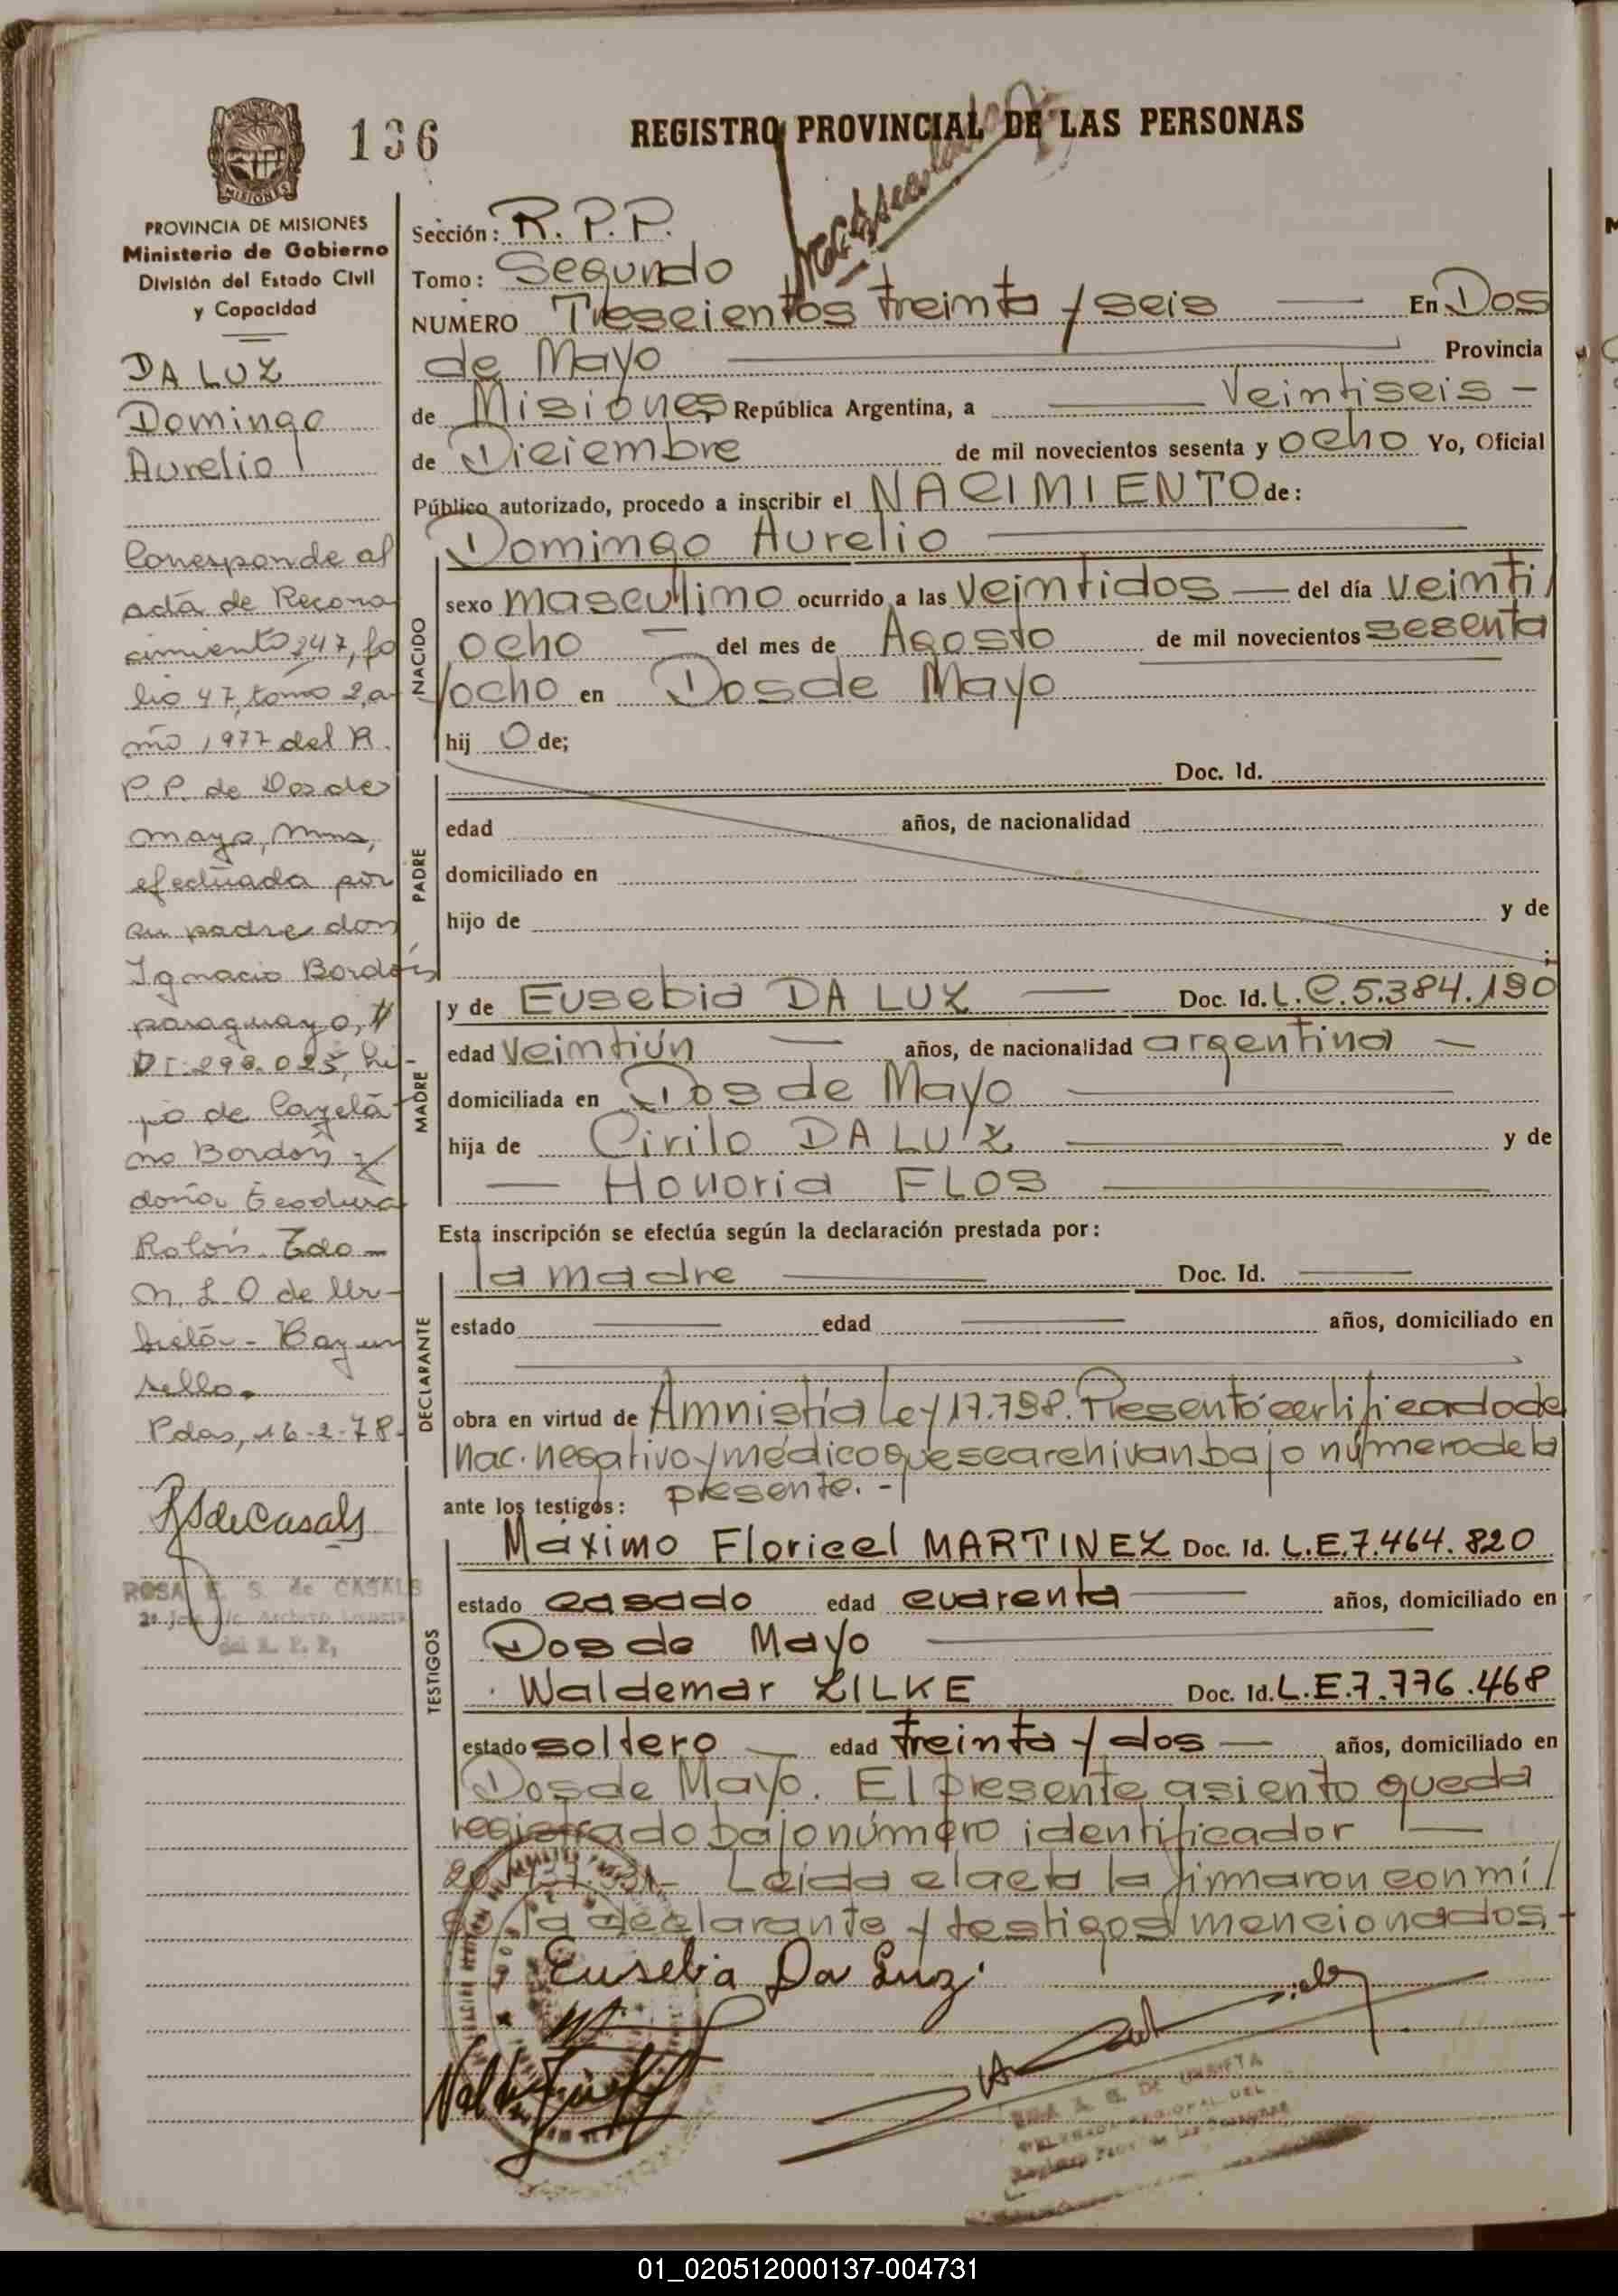 136
REGISTRO PROVINCIAL DE LAS PERSONAS
MISIONES
PROVINCIA DE MISIONES
Ministerio de Gobierno
División del Estado Civil
y Capacidad
DA LUZ
Domingo
Aurelio
Corresponde al
acta de Recono
cimiento 247, fo
lio 47, tomo 2, a-
ño 1977 del R.
P.P. de Dos de
mayo, Mnes,
efectuada por
su padre don
Ignacio Bordón
paraguayo,
DI. 298.025, hi
jo de Cayeta
no Bordón y
doña Teodura
Rolón. Fdo-
N. L. O de Ur-
bieta - Hay un
sello.
Pdas, 16-2-78.
RSdeCasals
ROSA E. S. de CASALS
del R. P. P.
Sección: R. P. P.
Tomo: Segundo
NUMERO Trescientos treinta y seis En Dos
de Mayo Provincia
de Misiones República Argentina, a Veintiseis -
de Diciembre de mil novecientos sesenta y ocho Yo, Oficial
Público autorizado, procedo a inscribir el NACIMIENTO de:
Domingo Aurelio
NACIDO
sexo masculino ocurrido a las veintidos del día veinti
ocho del mes de Agosto de mil novecientos sesenta
y ocho en Dos de Mayo
hij o de;
PADRE
Doc. Id.
edad años, de nacionalidad
domiciliado en
hijo de y de
;
MADRE
y de Eusebia DA LUZ Doc. Id. L.C.5.384.190
edad veintiún años, de nacionalidad argentina
domiciliada en Dos de Mayo
hija de Cirilo DA LUZ y de
Honoria FLOS
Esta inscripción se efectúa según la declaración prestada por:
DECLARANTE
la madre Doc. Id.
estado edad años, domiciliado en
obra en virtud de Amnistía Ley 17.798. Presentó certificado de
nac. negativo y médico que se archivan bajo número de la
ante los testigos: presente. -
TESTIGOS
Máximo Floricel MARTINEZ Doc. Id. L.E.7.464.820
estado casado edad cuarenta años, domiciliado en
Dos de Mayo
Waldemar ZILKE Doc. Id. L.E.7.776.468
estado soltero edad treinta y dos años, domiciliado en
Dos de Mayo. El presente asiento queda
registrado bajo número identificador
Leida el acta la firmaron con mi
go la declarante y testigos mencionados.
Eusebia Da Luz
DE URBIETA
DELEGADA REGIONAL DEL
01_020512000137-004731